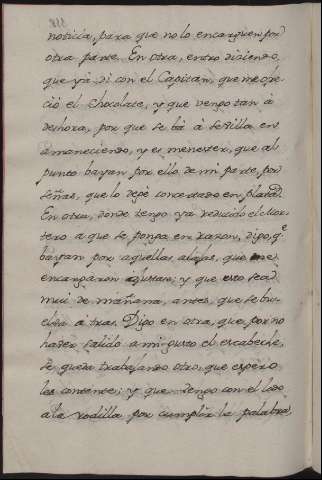 noticia, para que no lo encarguen por
otra parte. En otra, entro diciendo,
que yà di con el Capitan, que me ofre-
ciò el chocolate, y que vengo tan à
deshora, por que se bà à Sevilla en
amaneciendo, y es menester, que al
punto bayan por ello de mi parte, por
señas, que lo dejè concertado en plata.
En otra, donde tengo ya reducido el
tero a que se ponga en razon, digo, q.e
bayan por aquellas alajas, que me
encargaron ajustase; y que esto sea
mui de mañana, antes, que se bu-
elva à tras. Digo en otra, que por no
haver salido a mi gusto el escabeche,
se queda trabajando otro, que espero
les contente; y que vengo con el lodo
a la rodilla por cumplir la palabra,